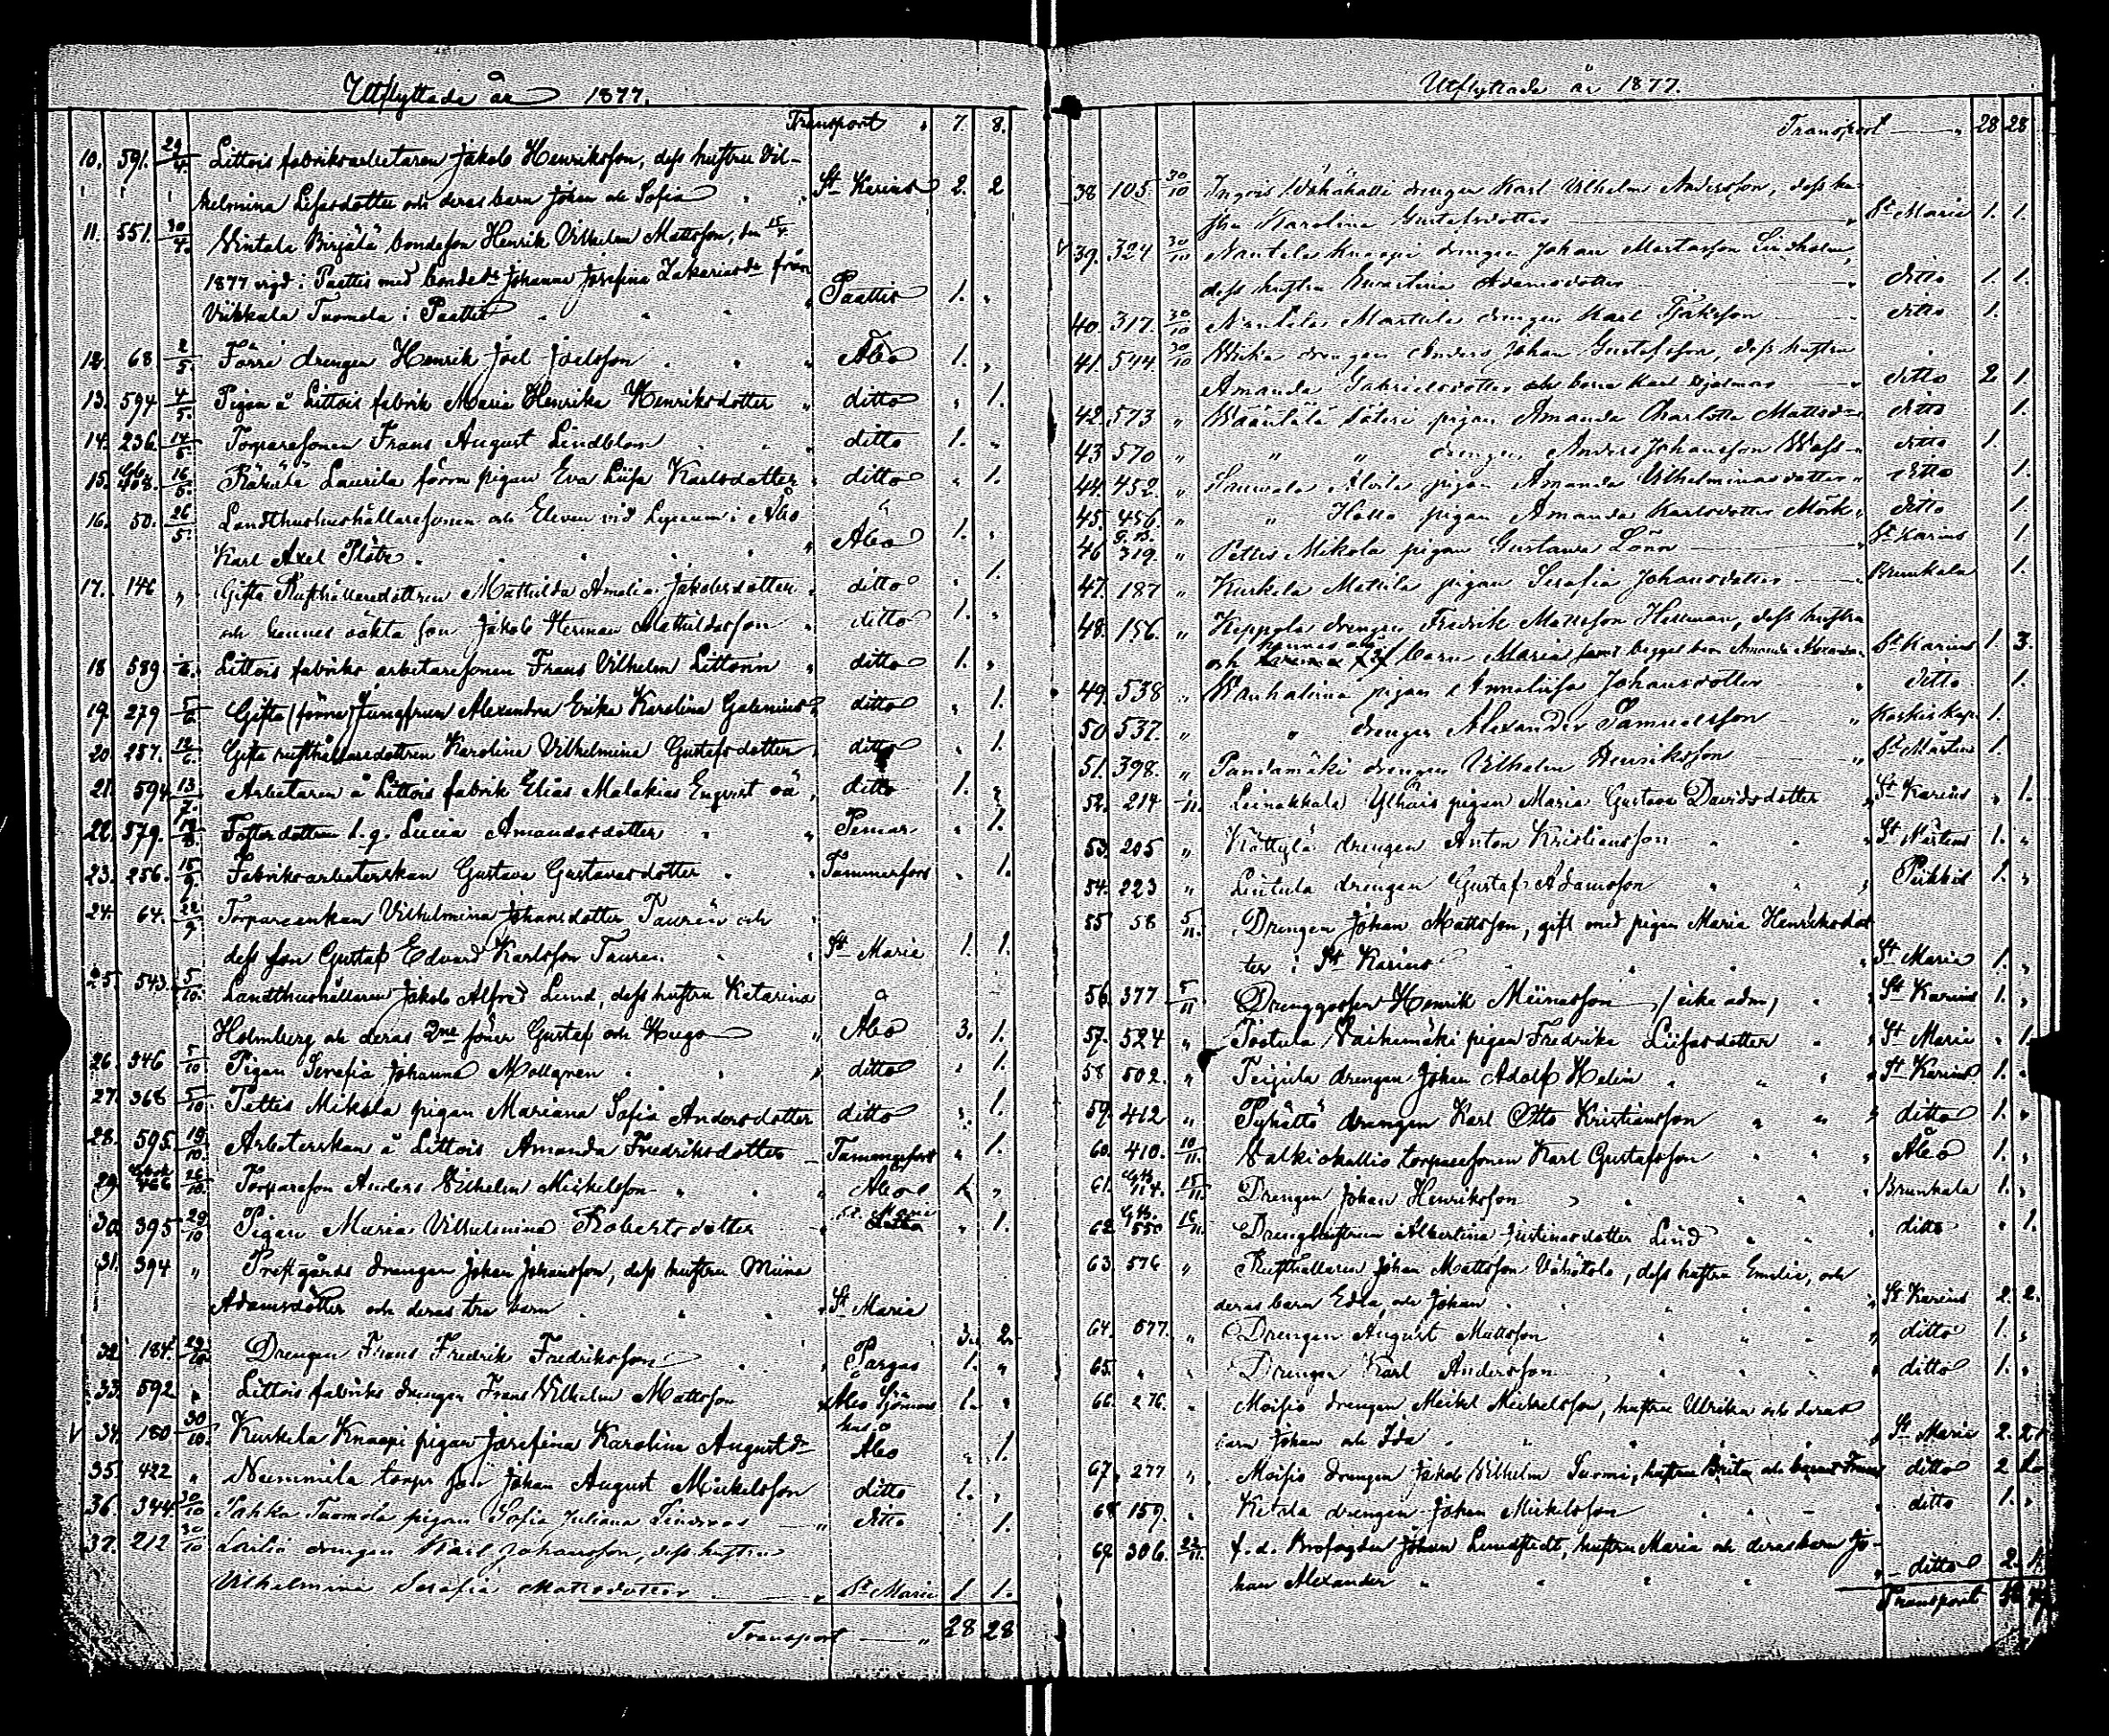 Utflyttade år 1877.
Transport " 7. 8.
10. 591. 29/4. Littois fabriksarbetaren Jakob Henriksson, dess hustru Vil-
helmina Lisasdotter och deras barn Johan och Sofia " St Karins 2. 2
11. 551. 30/4. Nintala Birjälä bondeson Henrik Vilhelm Mattsson, den 15/4.
1877 vigd i Paattis med bonded:r Johanna Josefina Zakariasd:r från
Viikkala Tuomola i Paattis " Paattis 1. "
12. 68. 2/5 Förri drengen Henrik Joel Joelsson " Åbo 1. "
13. 594 4/5. Pigan å Littois fabrik Maria Henrika Henriksdotter " ditto " 1.
14. 236. 14/5. Torparesonen Frans August Lindblom " ditto 1. "
15. 408. 16/5. Räkälä Laurila förra pigan Eva Liisa Karlsdotter " ditto " 1.
16. 50. 26/5. Landthushushållaresonen och Eleven vid Lyceum i Åbo
Karl Axel " Åbo 1. "
17. 146 " Gifta Rusthållaredottren Mathilda Amalia Jakobsdotter " ditto " 1.
och hennes oäkta son Jakob Herman Mathildasson " ditto 1. "
18 589 Littois fabriks arbetaresonen Frans Vilhelm Littonin " ditto 1. "
19. 279 5/6. Gifta (förra) Jungfrun Alexandra Erika Karolina Galenius " ditto " 1.
20. 257. 12/6. Gifta rusthållaredottren Karolina Vilhelmina Gustafsdotter " ditto " 1.
21. 594. 13/7. Arbetaren å Littois fabrik Elias Malakias Enqvist oä " ditto 1. "
22. 579. Fosterdottren s. g. Lucia Amandasdotter " Pemar " 1.
23. 256. 15/9. Fabriksarbeterskan Gustava Gustavasdotter " Tammerfors " 1.
24. 64. 22/9 Torpareenkan Vilhelmina Johansdotter Taurén och
dess son Gustaf Edvard Karlsson Taurén " St Marie 1. 1.
25. 543. 5/10. Landthushållaren Jakob Alfred Lund, dess hustru Katarina
Holmberg och deras 2ne söner Gustaf och Hugo " Åbo 3. 1.
26. 346 5/10 Pigan Serafia Johanna Mollgren " ditto " 1.
27. 368 5/10. Pettis Mikola pigan Mariana Sofia Andersdotter ditto " 1.
28. 595. 19/10. Arbeterskan å Littois Amanda Fredriksdotter Tammerfors " 1.
29. 466 26/10. Torpareson Anders Vilhelm Mickelsson " Åbo 1. "
30. 395 29/10 Pigan Maria Vilhelmina Robertsdotter " St. Marie " 1.
31. 394 " Prestgårds drengen Johan Johansson, dess hustru Miina
Adamsdotter och deras tre barn " St Maria 3. 2.
32 184. 29/10 Drengen Frans Fredrik Fredriksson " Pargas 1. "
33. 592 " Littois fabriks drengen Frans Vilhelm Mattsson Åbo Sjömans 1. "
hus
34. 180 30/10. Kurkela Knaapi pigan Josefina Karolina Augustd:r Åbo " 1.
35. 422 " Nummila torpr son Johan August Mickelsson ditto 1. "
36. 344. 30/10 Pahka Tuomola pigan Sofia Juliana Lindroos " ditto 1.
37. 212 30/10 drengen Karl Johansson, dess hustru
Vilhelmina Serafia Mattsdotter " St Marie 1. 1.
Transport " 28 28
Utflyttade år 1877.
Transport " 28 28
38 105 30/10 Ingois Wähäkalli drengen Karl Vilhelm Andersson, dess hu-
stru Karolina Gustafsdotter " St Marie 1. 1.
39. 324 30/10 Nautela Knaapi drengen Johan Martasson Lindholm,
dess hustru Ernestina Adamsdotter " ditto 1. 1.
40 317. 30/10 Nautela Marttila drengen Karl ditto 1.
41. 544 30/10 drengen Anders Johan Gustafsson, dess hustru
Amanda Gabrielsdotter och barn Karl Hjalmar " ditto 2 1.
42. 573 " Wääntälä Säteri pigan Amanda Charlotta Mattsd:r ditto 1.
43 570 " " " drengen Anders Johansson Wass " ditto 1.
44. 452. " Sauvala Alvila pigan Amanda Vilhelminasdotter " ditto 1.
45. 456. " " Hatto pigan Amanda Karlsdotter Mörk " ditto 1.
46 319. " Pettis Mikola pigan Gustava Lönn " St Karins 1.
47. 187 " Kurkela Mattila pigan Serafia Johansdotter Brunkala 1.
48. 156. " Keppola drengen Fredrik Mattsson Hellman, dess hustru
och hennes oä barn Maria samt begges barn Amanda Alexandra St Karins 1. 3.
49. 538 " Wanhalinna pigan Annaliisa Johansdotter " ditto 1.
50 537. " " drengen Alexander Samuelsson " Koskis kap. 1.
51. 398. " Pandamäki drengen Vilhelm Henriksson " St Mårtens 1.
52. 214 Leinakkala Ylhäis pigan Maria Gustava Davidsdotter " St Karins " 1.
53. 205 " Köttylä drengen Anton Kristiansson " St Mårtens 1. "
54. 223 " Liutula drengen Gustaf Adamsson " Piikkis 1. "
55 58 5/11. Drengen Johan Mattsson, gift med pigan Maria Henriksdot
ter i St Karins " St Maria 1. "
56. 377 5/11 Drenggossen Henrik Miinasson / icke adm / " St Karins 1. "
57. 524 " Töötula Vaihemäki pigan Fredrika Liisasdotter " St Marie " 1.
58 502. " Teijula drengen Johan Adolf Helin " St Karins 1. "
59. 412 " Pyhättö drengen Karl Otto Kristiansson " ditto 1. "
60. 410. 10/11. Valkiokallio torparesonen Karl Gustafsson " Åbo 1. "
61. 114. 15/11. Drengen Johan Henriksson " Brunkala 1. "
62 550 16/11. Drenghustrun Albertina Justinasdotter Lind " ditto " 1.
63. 576 " Rusthållaren Johan Mattsson Vähätalo, dess hustru Emilia, och
deras barn Edla, och Johan " St Karins 2. 2.
64. 577. " Drengen August Mattsson " ditto 1. "
65. " " Drengen Karl Andersson " ditto 1. "
66. 276. " Moisio drengen Mickel Mickelsson, hustru Ulrika och deras
barn Johan och Ida " St Maria 2. 2.
67. 277 " Moisio drengen Jakob Vilhelm Suomi, hustru Brita och barnet Frans ditto 2
68 159. " Ketala drengen Johan Mickelsson " ditto 1. "
69. 306. 22/11. f. d. Brofogden Johan Lundstedt, hustru Maria och deras barn Jo-
han Alexander " ditto 2. 1.
Transport